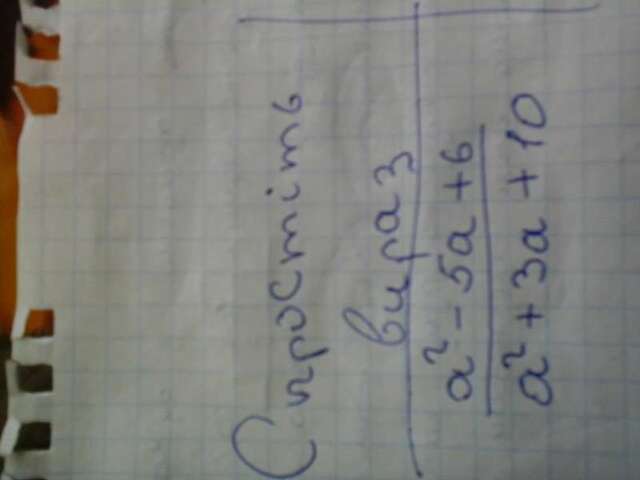 Спростіть
вираз
a² - 5a + 6
a² + 3a + 10